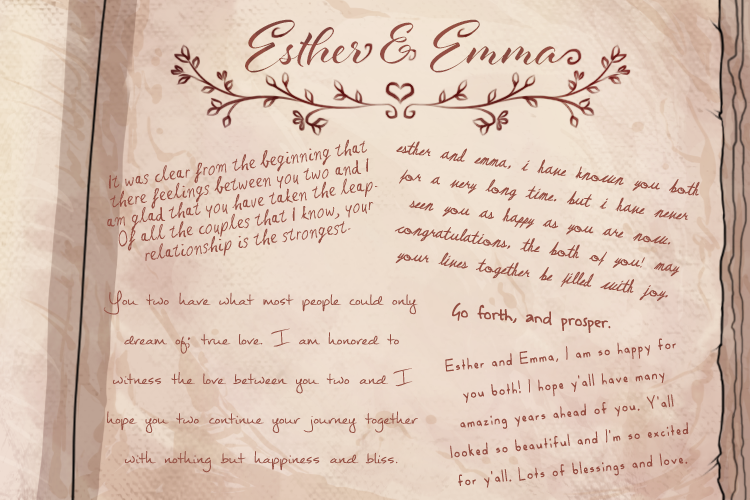 Esther & Emma
It was clear from the beginning that
there feelings between you two and I
am glad that you have taken the leap.
Of all the couples that I know, your
relationship is the strongest.
esther and emma, i have known you both
for a very long time. but i have never
seen you as happy as you are now.
congratulations, the both of you! may
your lives together be filled with joy.
You two have what most people could only
dream of; true love. I am honored to
witness the love between you two and I
hope you two continue your journey together
with nothing but happiness and bliss.
Go forth, and prosper.
Esther and Emma, I am so happy for
you both! I hope y'all have many
amazing years ahead of you. Y'all
looked so beautiful and I'm so excited
for y'all. Lots of blessings and love.